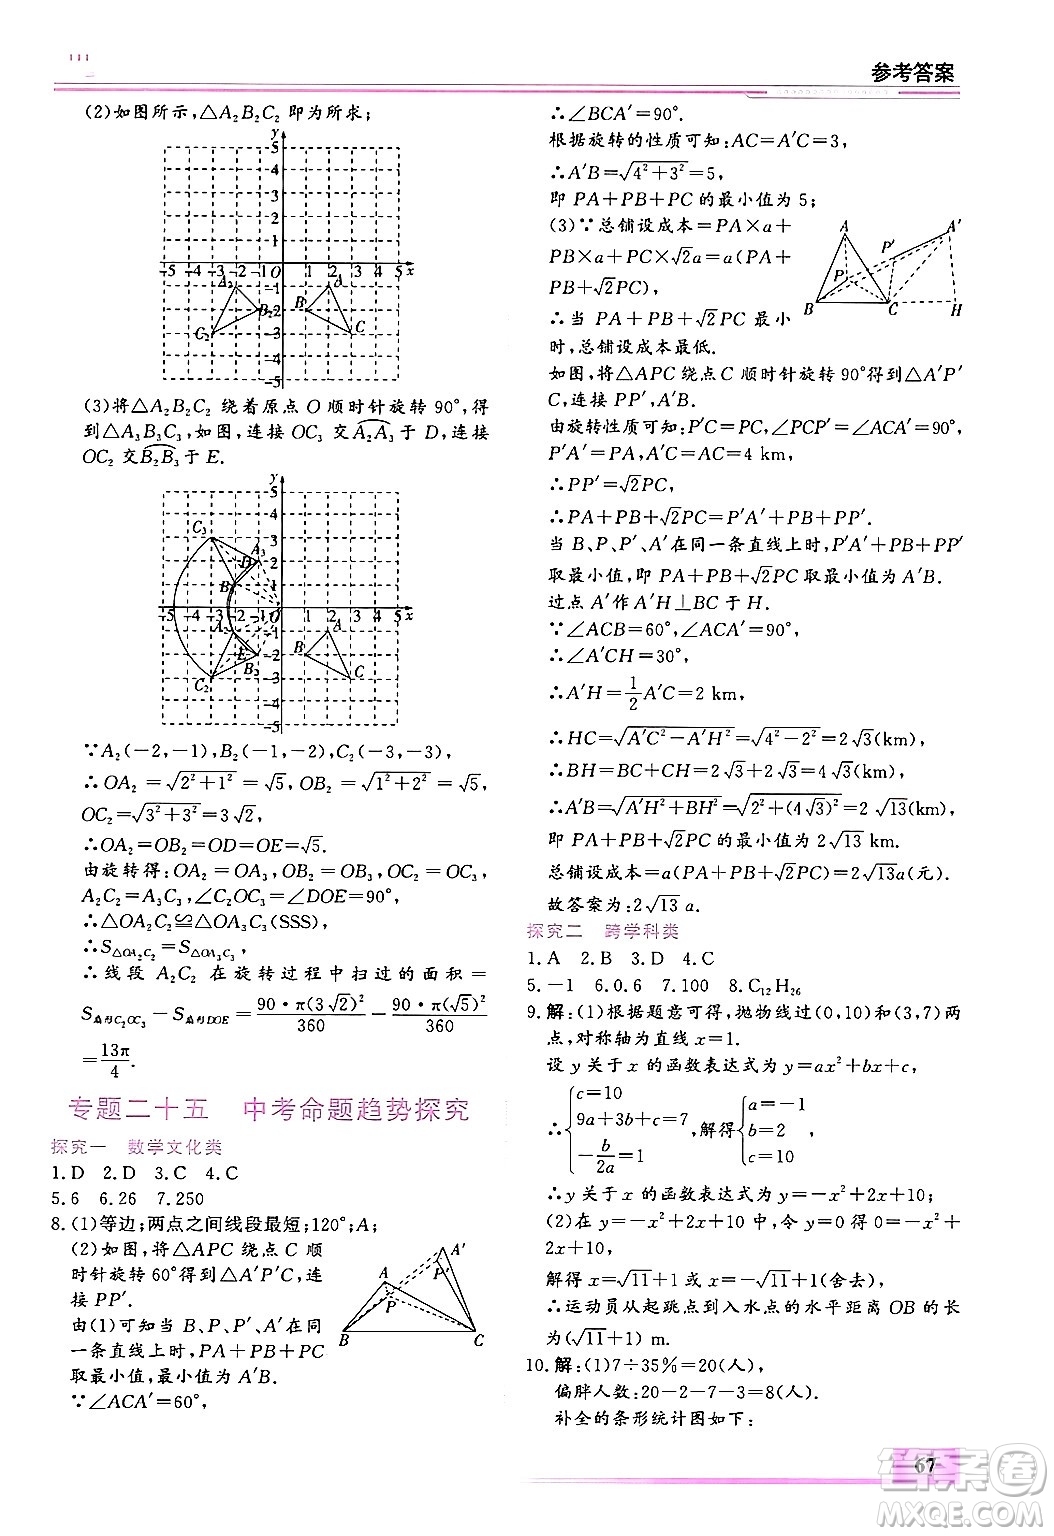 参考答案
(2)如图所示,△A₂B₂C₂ 即为所求;
y
5
4
3
2
1
-5 -4 -3 -2 -1 O 1 2 3 4 5 x
A₂ -1 A
B₂ -2 B
C₂ -3 C
-4
-5
(3)将△A₂B₂C₂ 绕着原点 O 顺时针旋转 90°,得
到△A₃B₃C₃,如图,连接 OC₃ 交A₂A₃于 D,连接
OC₂ 交B₂B₃于 E.
y
5
4
C₃ 3
A₃ D 2
B₃ 1
-5 -4 -3 -2 -1 O 1 2 3 4 5 x
A₂ -1 A
E B₂ -2 B
C₂ -3 C
-4
-5
∵A₂(-2,-1),B₂(-1,-2),C₂(-3,-3),
∴OA₂=√(2²+1²)=√5,OB₂=√(1²+2²)=√5,
OC₂=√(3²+3²)=3√2,
∴OA₂=OB₂=OD=OE=√5.
由旋转得:OA₂=OA₃,OB₂=OB₃,OC₂=OC₃,
A₂C₂=A₃C₃,∠C₂OC₃=∠DOE=90°,
∴△OA₂C₂≌△OA₃C₃(SSS)
∴S△OA₂C₂=S△OA₃C₃,
∴线段 A₂C₂ 在旋转过程中扫过的面积=
S扇形C₂OC₃-S扇形DOE=90·π(3√2)²/360-90·π(√5)²/360
=13π/4.
专题二十五 中考命题趋势探究
探究一 数学文化类
1.D 2.D 3.C 4.C
5.6 6.26 7.250
8.(1)等边;两点之间线段最短;120°;A;
(2)如图,将△APC 绕点 C 顺
时针旋转 60°得到△A′P′C,连
接 PP′.
由(1)可知当 B、P、P′、A′在同
一条直线上时,PA+PB+PC
取最小值,最小值为 A′B.
∵∠ACA′=60°,
A′
P′
A
P
B C
∴∠BCA′=90°.
根据旋转的性质可知:AC=A′C=3,
∴A′B=√(4²+3²)=5,
即 PA+PB+PC 的最小值为 5;
(3)∵总铺设成本=PA×a+
PB×a+PC×√2a=a(PA+
PB+√2PC),
∴当 PA+PB+√2PC 最小
时,总铺设成本最低.
A A′
P′
P
B C H
如图,将△APC 绕点 C 顺时针旋转 90°得到△A′P′
C,连接 PP′,A′B.
由旋转性质可知:P′C=PC,∠PCP′=∠ACA′=90°,
P′A′=PA,A′C=AC=4 km,
∴PP′=√2PC,
∴PA+PB+√2PC=P′A′+PB+PP′.
当 B、P、P′、A′在同一条直线上时,P′A′+PB+PP′
取最小值,即 PA+PB+√2PC 取最小值为 A′B.
过点 A′作 A′H⊥BC 于 H.
∵∠ACB=60°,∠ACA′=90°,
∴∠A′CH=30°,
∴A′H=1/2A′C=2 km,
∴HC=√(A′C²-A′H²)=√(4²-2²)=2√3(km)
∴BH=BC+CH=2√3+2√3=4√3(km),
∴A′B=√(A′H²+BH²)=√(2²+(4√3)²)=2√13(km)
即 PA+PB+√2PC 的最小值为 2√13 km.
总铺设成本=a(PA+PB+√2PC)=2√13a(元).
故答案为:2√13 a.
探究二 跨学科类
1.A 2.B 3.D 4.C
5.-1 6.0.6 7.100 8.C₁₂H₂₆
9.解:(1)根据题意可得,抛物线过(0,10)和(3,7)两
点,对称轴为直线 x=1.
设 y 关于 x 的函数表达式为 y=ax²+bx+c,
∴{c=10
9a+3b+c=7,解得{a=-1
b=2
-b/2a=1 c=10
∴y 关于 x 的函数表达式为 y=-x²+2x+10;
(2)在 y=-x²+2x+10 中,令 y=0 得 0=-x²+
2x+10;
解得 x=√11+1 或 x=-√11+1(舍去),
∴运动员从起跳点到入水点的水平距离 OB 的长
为(√11+1) m.
10.解:(1)7÷35%=20(人),
偏胖人数:20-2-7-3=8(人).
补全的条形统计图如下:
67
答案圈
MXQE.COM